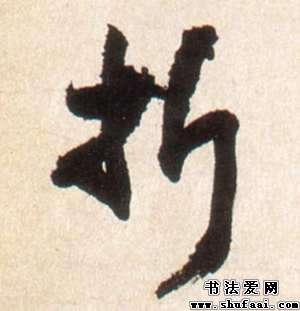 折
书法爱网
www.shufaai.com